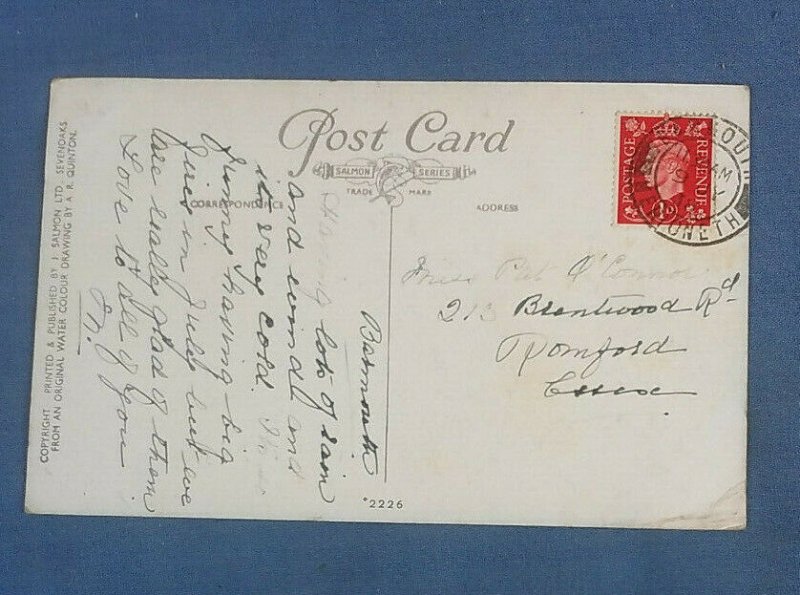 Post Card
SALMON SERIES
TRADE MARK
CORRESPONDENCE
ADDRESS
COPYRIGHT. PRINTED & PUBLISHED BY J. SALMON LTD. SEVENOAKS.
FROM AN ORIGINAL WATER COLOUR DRAWING BY A. R. QUINTON.
Barmouth
Having lots of rain
and wind and
it's very cold.
funny having big
fires in July but we
are really glad of them
Love to all of you
M.
POSTAGE
REVENUE
1D
Miss Pat O'Connor
213 Brentwood Rd
Romford
Essex
*2226